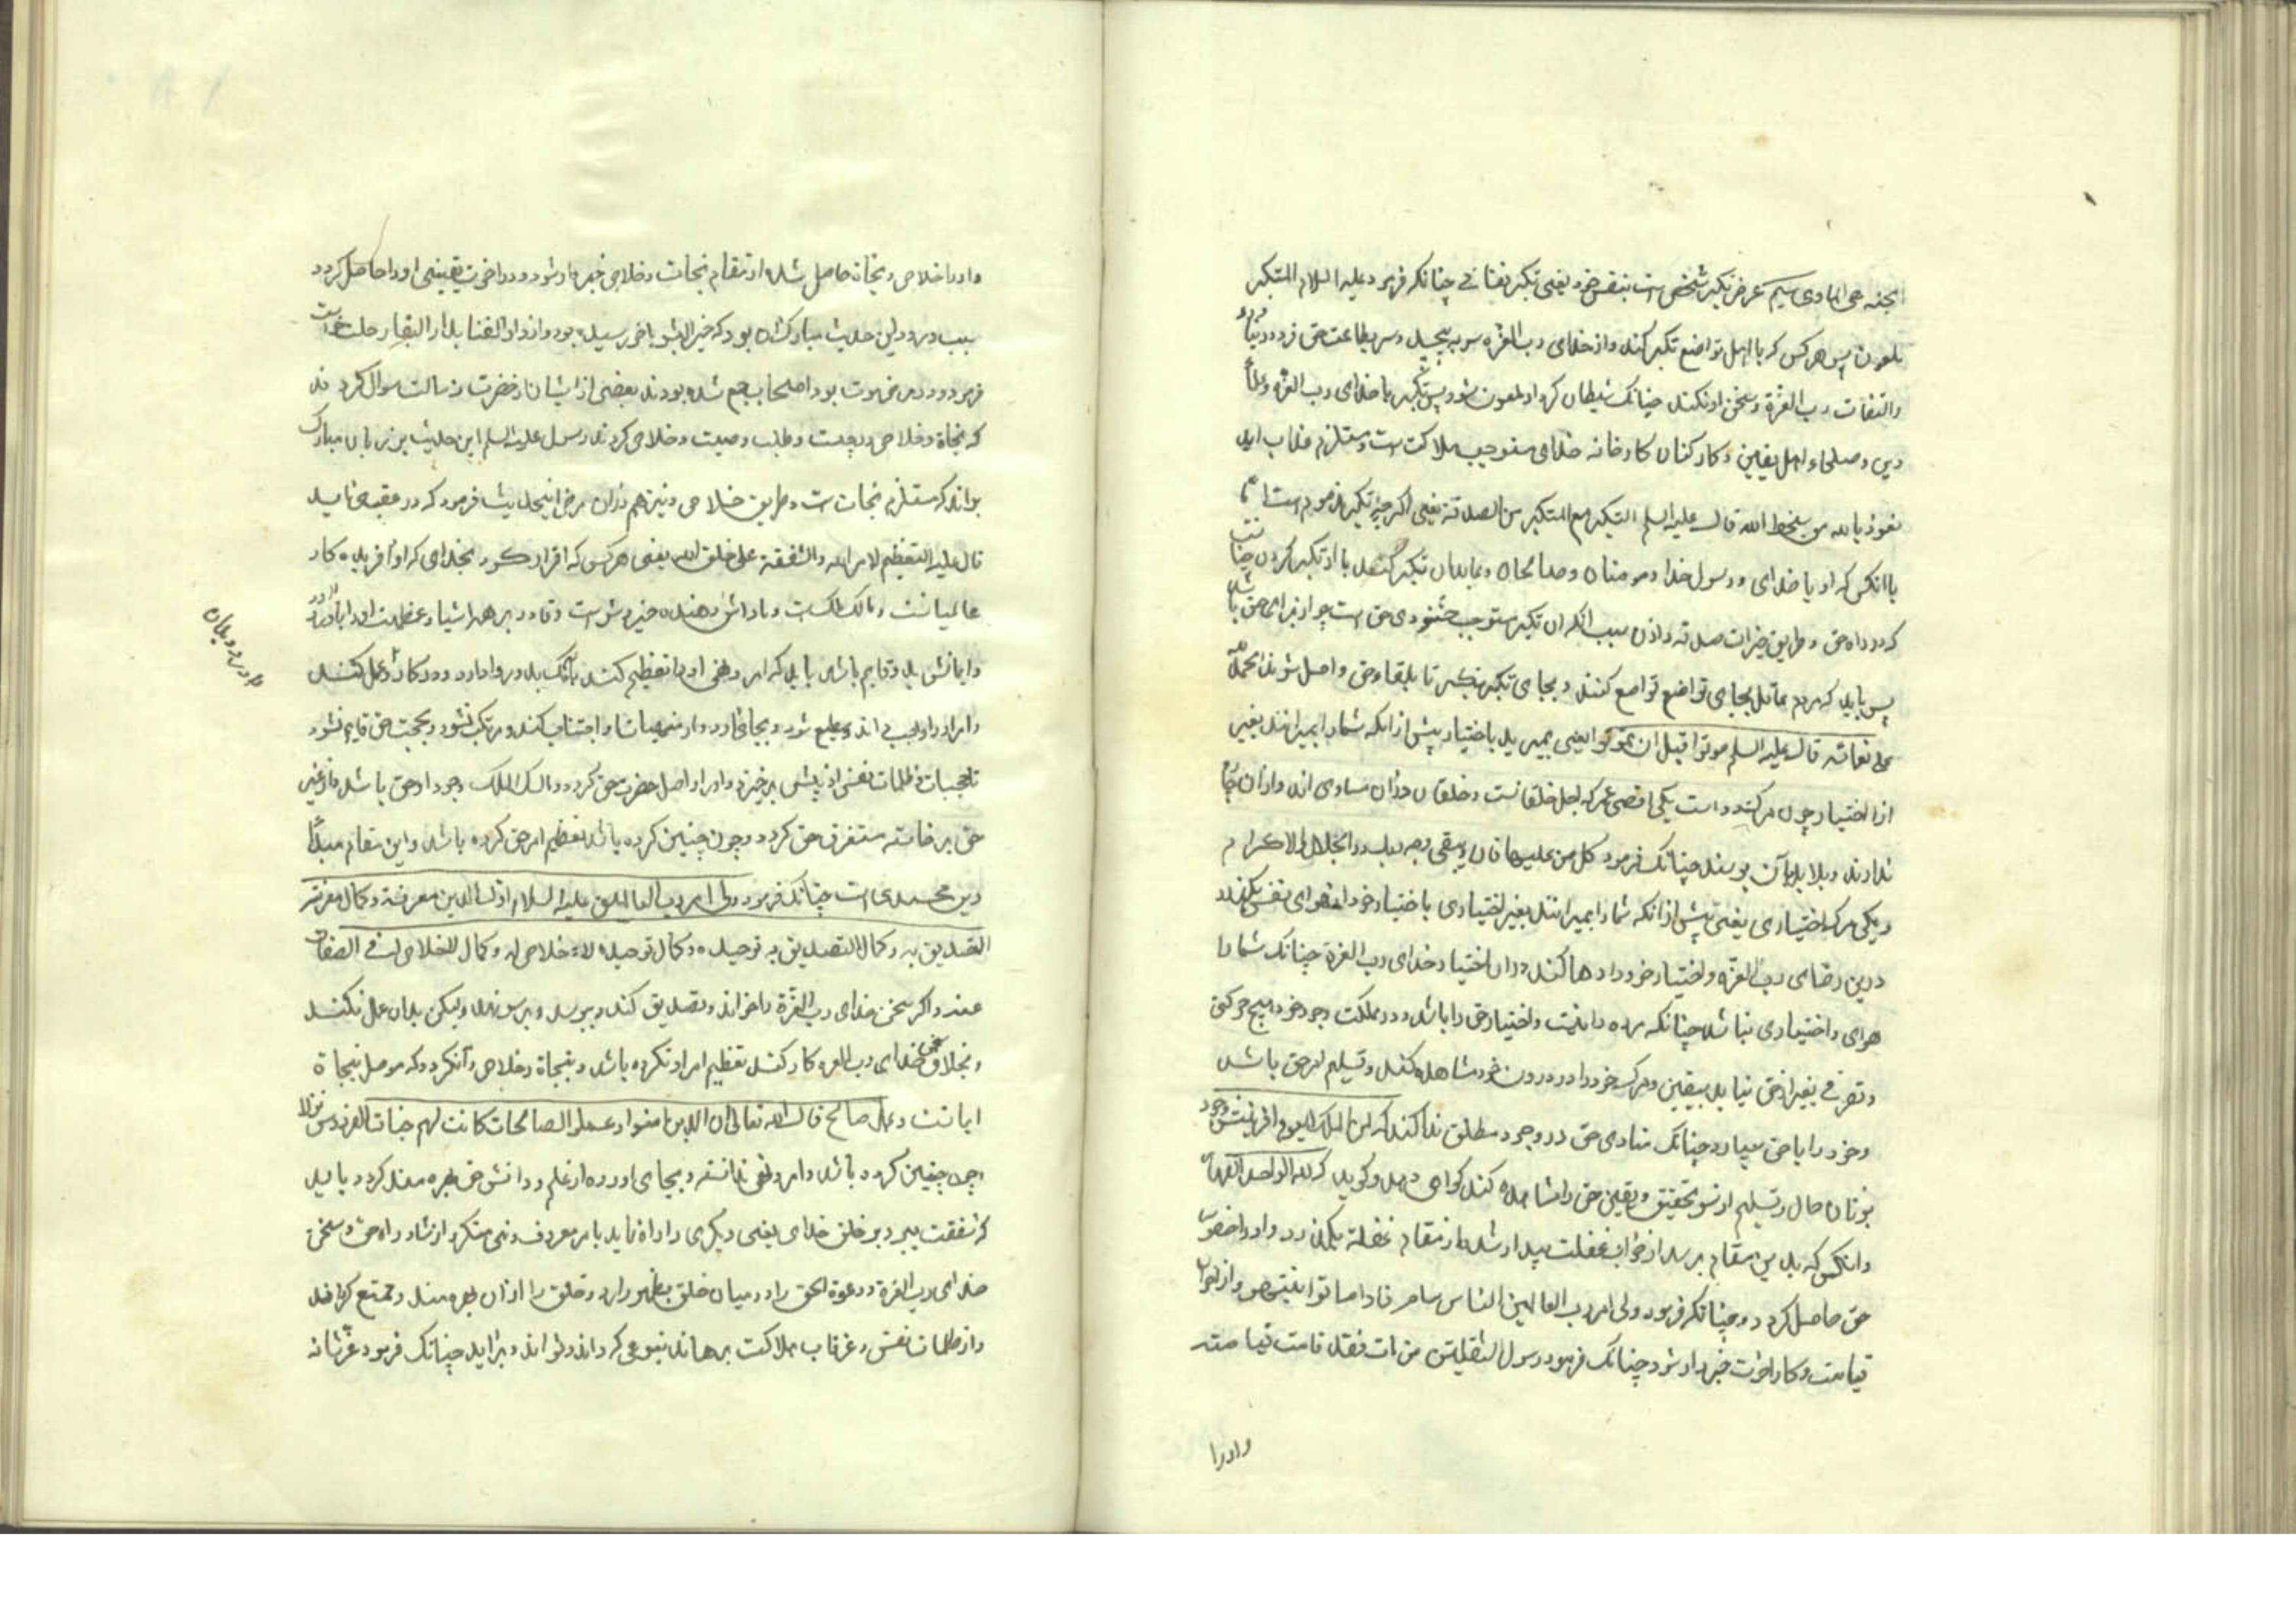 الجنة هی الماوی سیم غرض تکبر شخص است بنفس خود یعنی تکبر نفسانی چنانکه فرمود علیه السلام المتکبر
ملعون پس هر کس که با اهل تواضع تکبر کند و از خدای رب العزه سر به پیچد و سر بطاعت حق فرود نیاورد
والتفات رب العزة و سخن او نکند چنانک شیطان کرد او ملعون شود پس تکبر با خدای رب العزه و علماء
دین و صلحاء اهل یقین و کارکنان کارخانه خدای مستوجب هلاکت است و مستلزم عذاب ابد
نعوذ بالله من سخط الله قال علیه السلم التکبر مع المتکبر من الصدقة یعنی اگر چه تکبر مذموم است اما
با انکس که او با خدای و رسول خدا و مومنان و صالحان و عابدان تکبر کند با او تکبر کردن چنانست
که در راه حق و طریق خیرات صدقه داذن سبب آنکه ان تکبر مستوجب خشنودی حق است چو از برای حق باشد
پس باید که مردم عاقل بجای تواضع تواضع کنند و بجای تکبر تکبر تا بلقاء حق واصل شوند الحمد لله
علی نعمائه قال علیه السلم موتوا قبل ان تموتوا یعنی بمیرید باختیار پیش از انکه شما را بمیرانند بغیر
از اختیار چون مرک دو است یکی اقصی عمر که اجل خلقانست و خلقان دران مساوی اند و از ان چاره
ندارند و بلا بد بآن بوسند چنانک فرمود کل من علیها فان و یبقی وجه ربک ذو الجلال والاکرام
و یکی مرک اختیاری یعنی پیش از انکه شما را بمیرانند بغیر اختیاری باختیار خود از هوای نفس بکذرد
درین رضای رب العزه و اختیار خود را رها کند و دران اختیار خدای رب العزة چنانک شما را
هوای و اختیاری نباشد چنانکه مرده را نیست و اختیار حق را باشد و در مملکت وجود خود هیچ حرکتی
و تصرفی بغیر از حق نیابد بیقین و مرک خود را در درون خود مشاهده کند و تسلیم امر حق باشد
و خود را با حق سپارد چنانک منادی حق در وجود مطلق ندا کند که لمن الملک الیوم و افرینش وجود
بزبان حال و تسلیم از سر تحقیق و یقین حق را مشاهده کند کواهی دهد و کوید که لله الواحد القهار
و انکس که بدین مقام برسد از خواب غفلت بیدار شد و از مقام غفلة بکذرد و او را حضور
حق حاصل کردد چنانکه فرمود ولی امر رب العالمین الناس نیام فاذا ماتوا انتبهوا و از احوال
قیامت و کار اخرت خبردار شود چنانک فرمود رسول الثقلین من مات فقد قامت قیامته
و او را
و او را خلاص و نجاة حاصل شد و از مقام نجات و خلاص خبردار شود و در اخرت یقینی او را حاصل کردد
سبب ورود این حدیث مبارک ان بود که خیر البشر باخر رسیده بود و از دار الفنا بدار البقا رحلت خواست
فرمود و در مرض موت بود اصحاب جمع شده بودند بعضی از ایشان از حضرت رسالت سوال کردند
که نجاة و خلاص در چیست و طلب وصیت و خلاص کردند رسول علیه السلم این حدیث بر زبان مبارک
براند که مستلزم نجات است و طریق خلاص و نیز هم دران مرض اینحدیث فرمود که در عقب می اید
قال علیه التعظیم لامر الله والشفقة علی خلق الله یعنی هر کس که اقرار کرد بخدای که او افریده کار
عالمیانست و مالک ملکست و پاداش دهنده خیر و شر است و قادر بر همه اشیا و عظمت او را باور
و ایمانش بد و قایم باشد باید که امر و نهی او را تعظیم کند بانک بدو روا دارد و در کار و عمل کند
و امر او را واجب داند و مطیع شود و بجای آورد و از منهیات او اجتناب کند و مرتکب نشود و بحجت حق قایم شود
تا حجبات و ظلمات نفس از پیش بر خیزد و او را واصل حضرت حق کردد و مالک الملک وجود او حق باشد و از غیر
حق بر خاسته مستغرق حق کردد و چون چنین کرده باشد تعظیم امر حق کرده باشد و این مقام مبدأ
دین محمدی است چنانک فرمود ولی امر رب العالمین علیه السلام اول الدین معرفته و کمال معرفته
التصدیق به و کمال التصدیق به توحیده و کمال توحیده الاخلاص له و کمال الاخلاص له نفی الصفات
عنه و اکر سخن خدای رب العزة را خواند و تصدیق کند و بپرسد و برسونهد ولیکن بدان عمل نکند
و بخلاف سخن خدای رب العزه کار کند تعظیم امر او نکرده باشد و بنجاة و خلاص و آنکردد که موصل بنجاة
ایمانست و عمل صالح قال الله تعالی ان الذین امنوا و عملوا الصالحات کانت لهم جنات الفردوس نزلا
و چون چنین کرده باشد و امر و نهی دانسته و بجای اورده از علم و دانش حق بهره مند کردد باید
که شفقت ببرد بر خلق خدای یعنی دیکری را راه نماید بامر معروف و نهی منکر و ارشاد راه حق و سخن
خدای رب العزة و دعوة الحق را در میان خلق بظهور ارد و خلق را از ان بهره مند و متمتع کرداند
و از ظلمات نفس و غرقاب هلاکت برهاند بنوعی که داند و تواند و برآید چنانک فرمود عز شانه